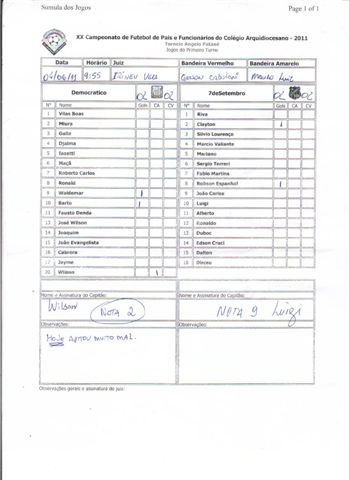 Súmula dos Jogos Page 1 of 1
XX Campeonato de Futebol de Pais e Funcionários do Colégio Arquidiocesano - 2011
Torneio Angelo Pakasé
Jogos do Primeiro Turno
Data Horário Juiz Bandeira Vermelho Bandeira Amarelo
04/06/11 9:55
Democratico 02 02 7deSetembro 02 02
Nº Nome Gols CA CV Nº Nome Gols CA CV
1 Vilas Boas 1 Riva
2 Miura 2 Clayton 1
3 Gallo 3 Silvio Lourenço
4 Djalma 4 Marcio Valiante
5 Iasetti 5 Mariano
6 Maçã 6 Sergio Torreri
7 Roberto Carlos 7 Fabio Martins
8 Ronald 8 Robson Espanhol 1
9 Waldemar 1 9 João Carlos
10 Barto 1 10 Luigi
11 Fausto Denda 11 Alberto
13 José Wilson 12 Ronaldo
14 Joaquim 13 Duboc
15 João Evangelista 14 Edson Craci
16 Cabrera 15 Dalton
17 Jayme 18 Dirceu
20 Wilson 1
Nome e Assinatura do Capitão: Nome e Assinatura do Capitão:
Wilson NOTA 2 NOTA 9 Luigi
Observações: Observações:
HOJE APITOU MUITO MAL.
Observações gerais e assinatura do juiz: